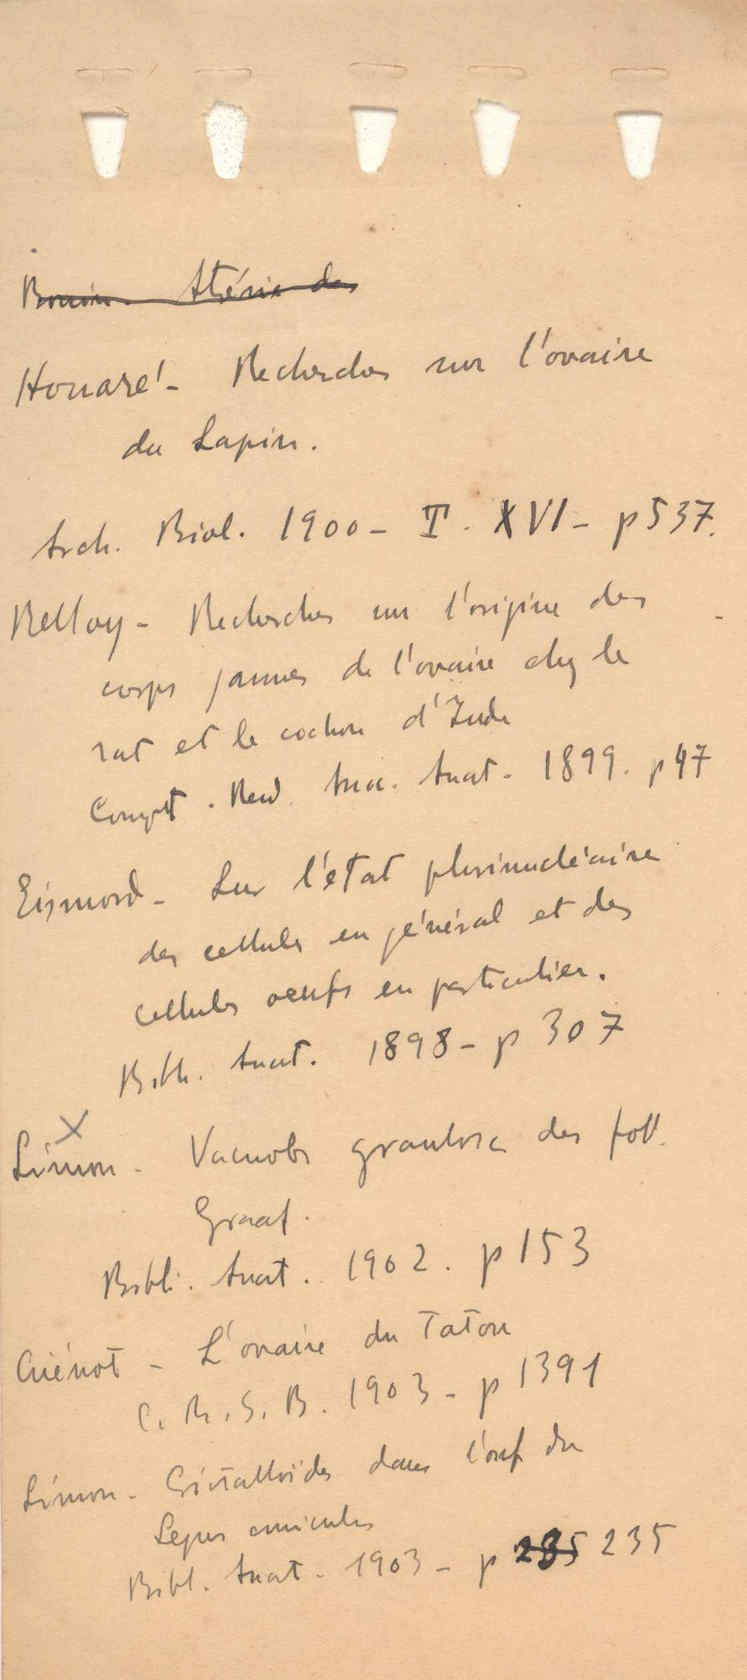 Bouin. Atrésie des
Honoré - Recherches sur l'ovaire
du Lapin.
Arch. Biol. 1900 - T. XVI - p 537.
Belloy - Recherches sur l'origine des
corps jaunes de l'ovaire chez le
rat et le cochon d'Inde
Compt. Rend. Anat. 1899. p 47
Eismond - Sur l'état plurinucléaire
des cellules en général et des
cellules oeufs en particulier.
Bibl. Anat. 1898 - p 307
X
Limon - Vacuoles granulosa des foll.
Graaf.
Bibli. Anat. 1902. p 153
Cuénot - L'ovaire du Tatou
C. R. S. B. 1903 - p 1391
Limon - Cristalloïdes dans l'oeuf du
Lepus cuniculus
Bibl. Anat - 1903 - p 285 235